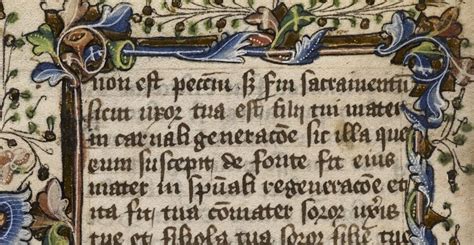 non est peccm̄ sʒ fm sacramentū
sicut uxor tua est filii tui mater
in carnali generacōe sic illa que
eum suscepit de fonte fit eius
mater in spūali regeneracōe et
ita fit tua cōmater soror uxīs
tue et filiola tua soror filie tue